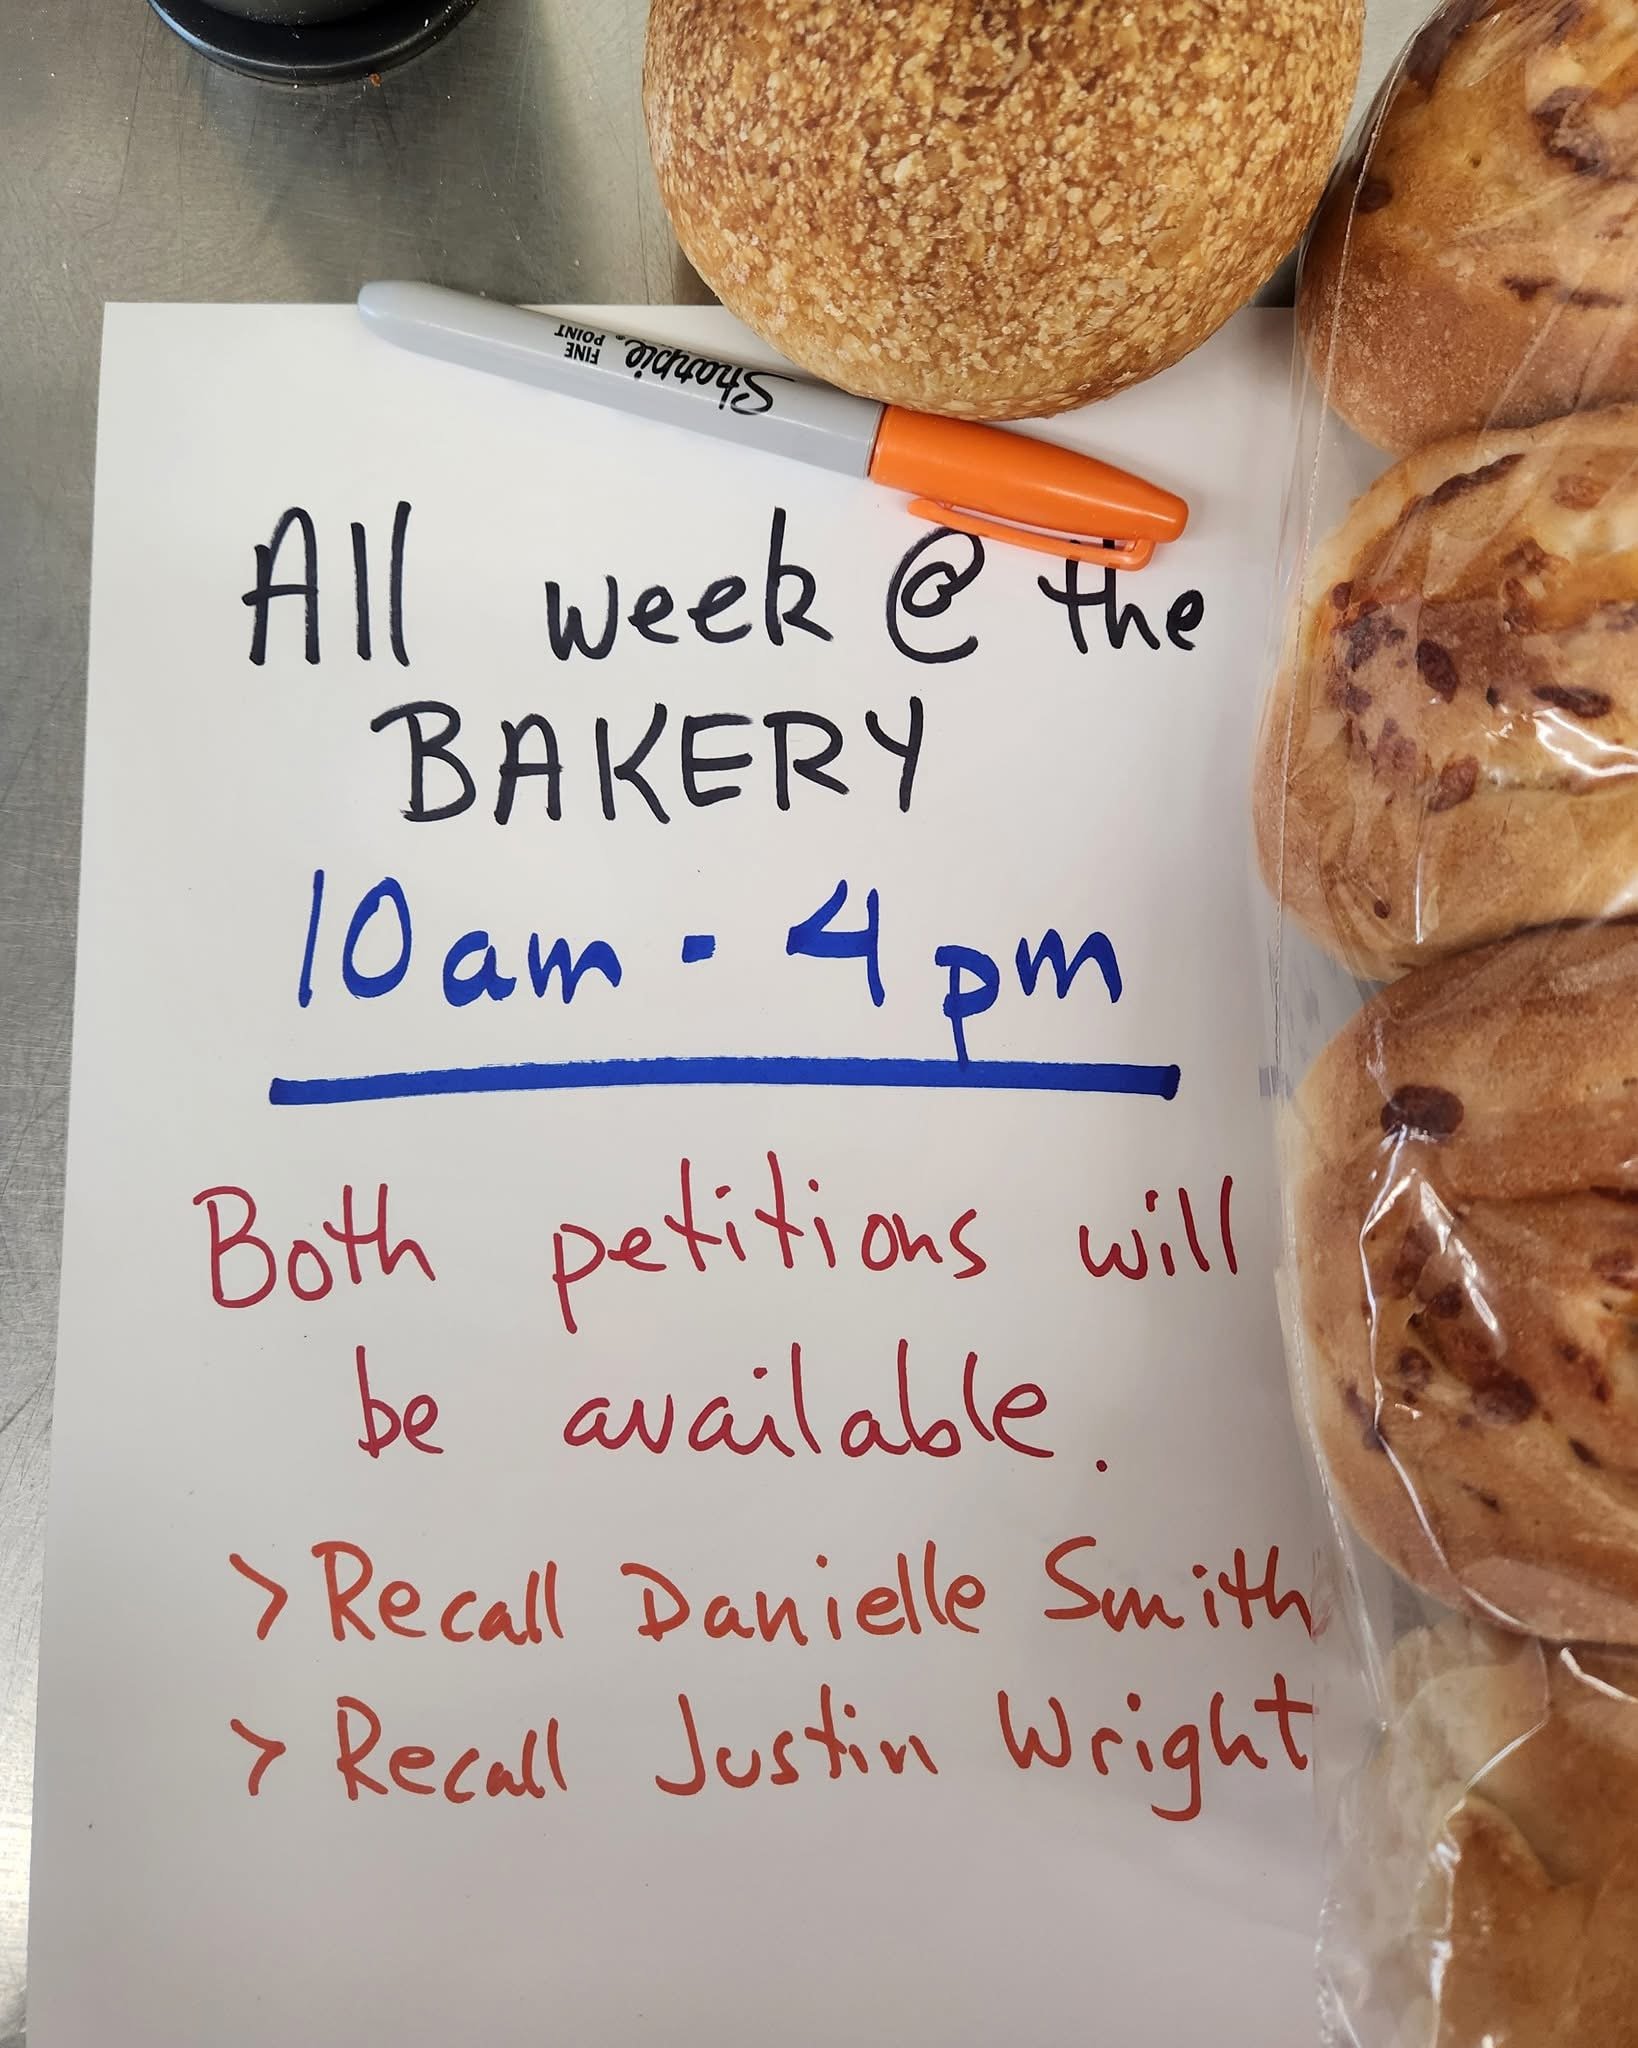 Sharpie
FINE
POINT
All week @ the
BAKERY
10am - 4pm
Both petitions will
be available.
> Recall Danielle Smith
> Recall Justin Wright